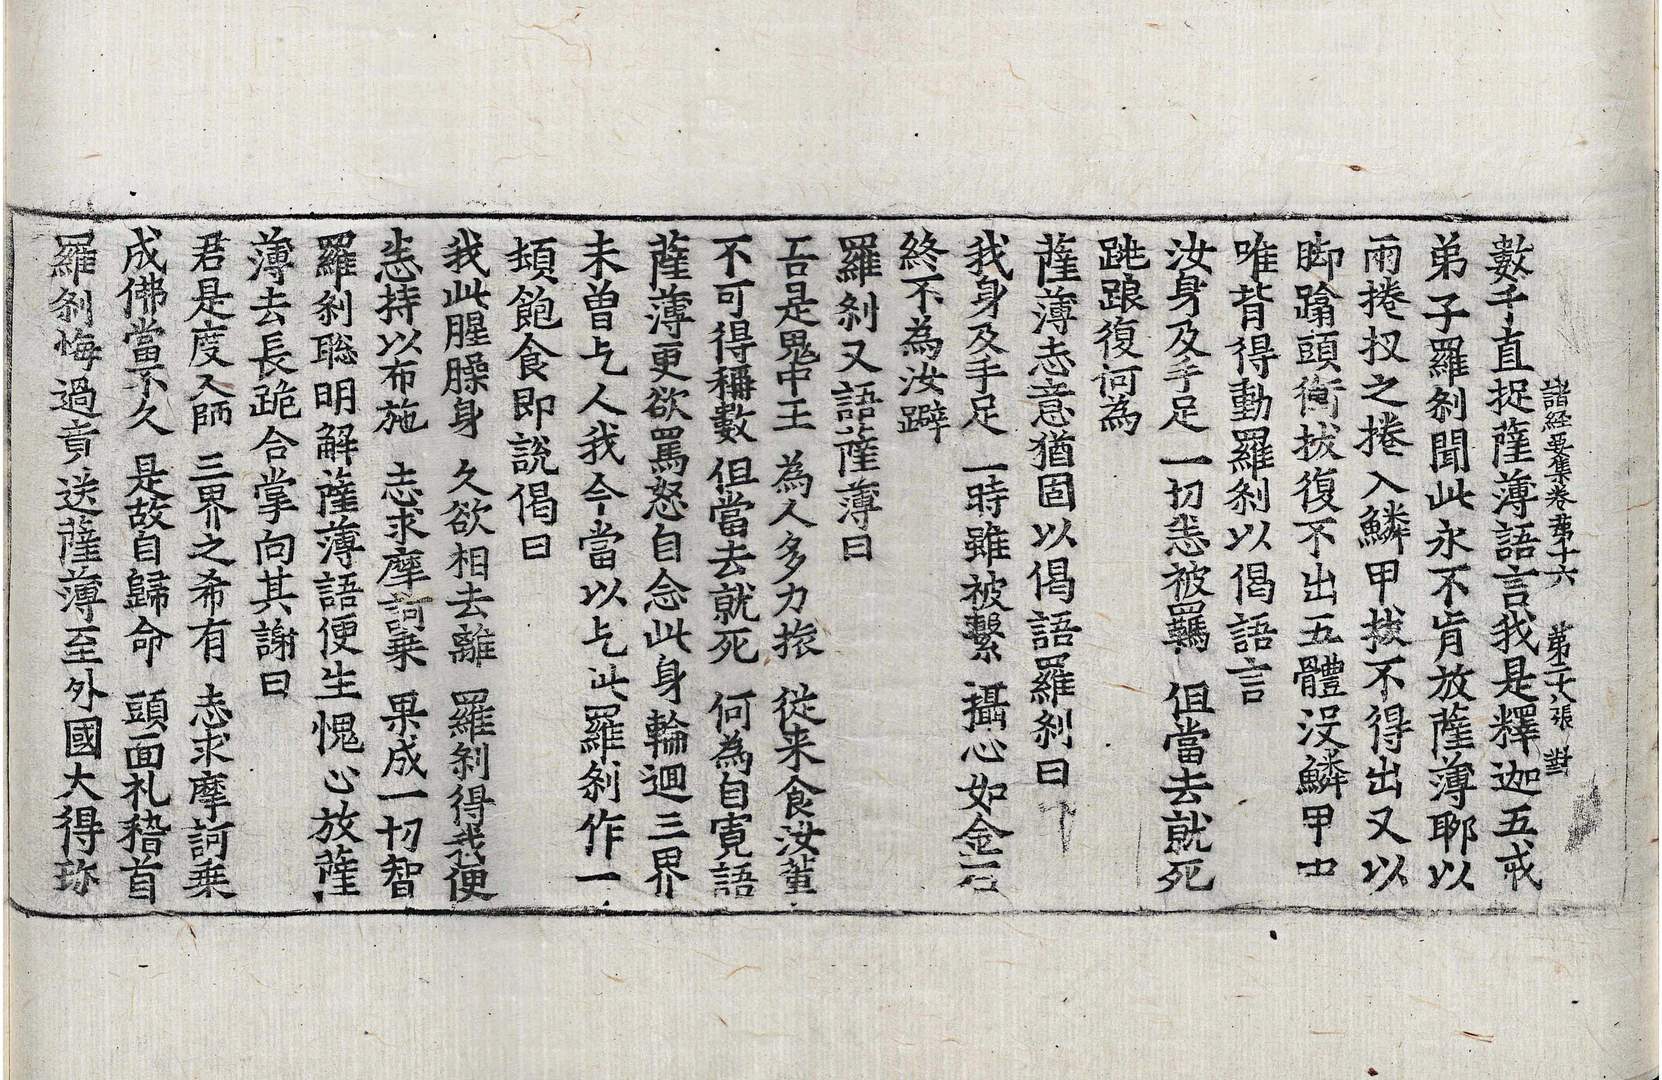 諸經要集卷第十六 第二十八張 對
數千直捉薩薄語言我是釋迦五戒
弟子羅刹聞此永不肯放薩薄聊以
兩捲扠之捲入鱗甲拔不得出又以
脚踰頭衝拔復不出五體没鱗甲中
唯背得動羅刹以偈語言
汝身及手足 一切恙被羈 但當去就死
跳踉復何為
薩薄志意猶固以偈語羅刹曰
我身及手足 一時雖被繫 攝心如金石
終不為汝躃
羅刹又語薩薄曰
吾是鬼中王 為人多力旅 從来食汝輩
不可得稱數 但當去就死 何為自寬語
薩薄更欲罵怒自念此身輪迴三界
未曾乞人我今當以乞此羅刹作一
頓飽食即説偈曰
我此腥臊身 久欲相去離 羅刹得我便
恙持以布施 志求摩訶乗 果成一切智
羅刹聡明解薩薄語便生愧心放薩
薄去長跪合掌向其謝曰
君是度人師 三界之希有 志求摩訶乗
成佛當不久 是故自歸命 頭面礼稽首
羅刹悔過責送薩薄至外國大得珎